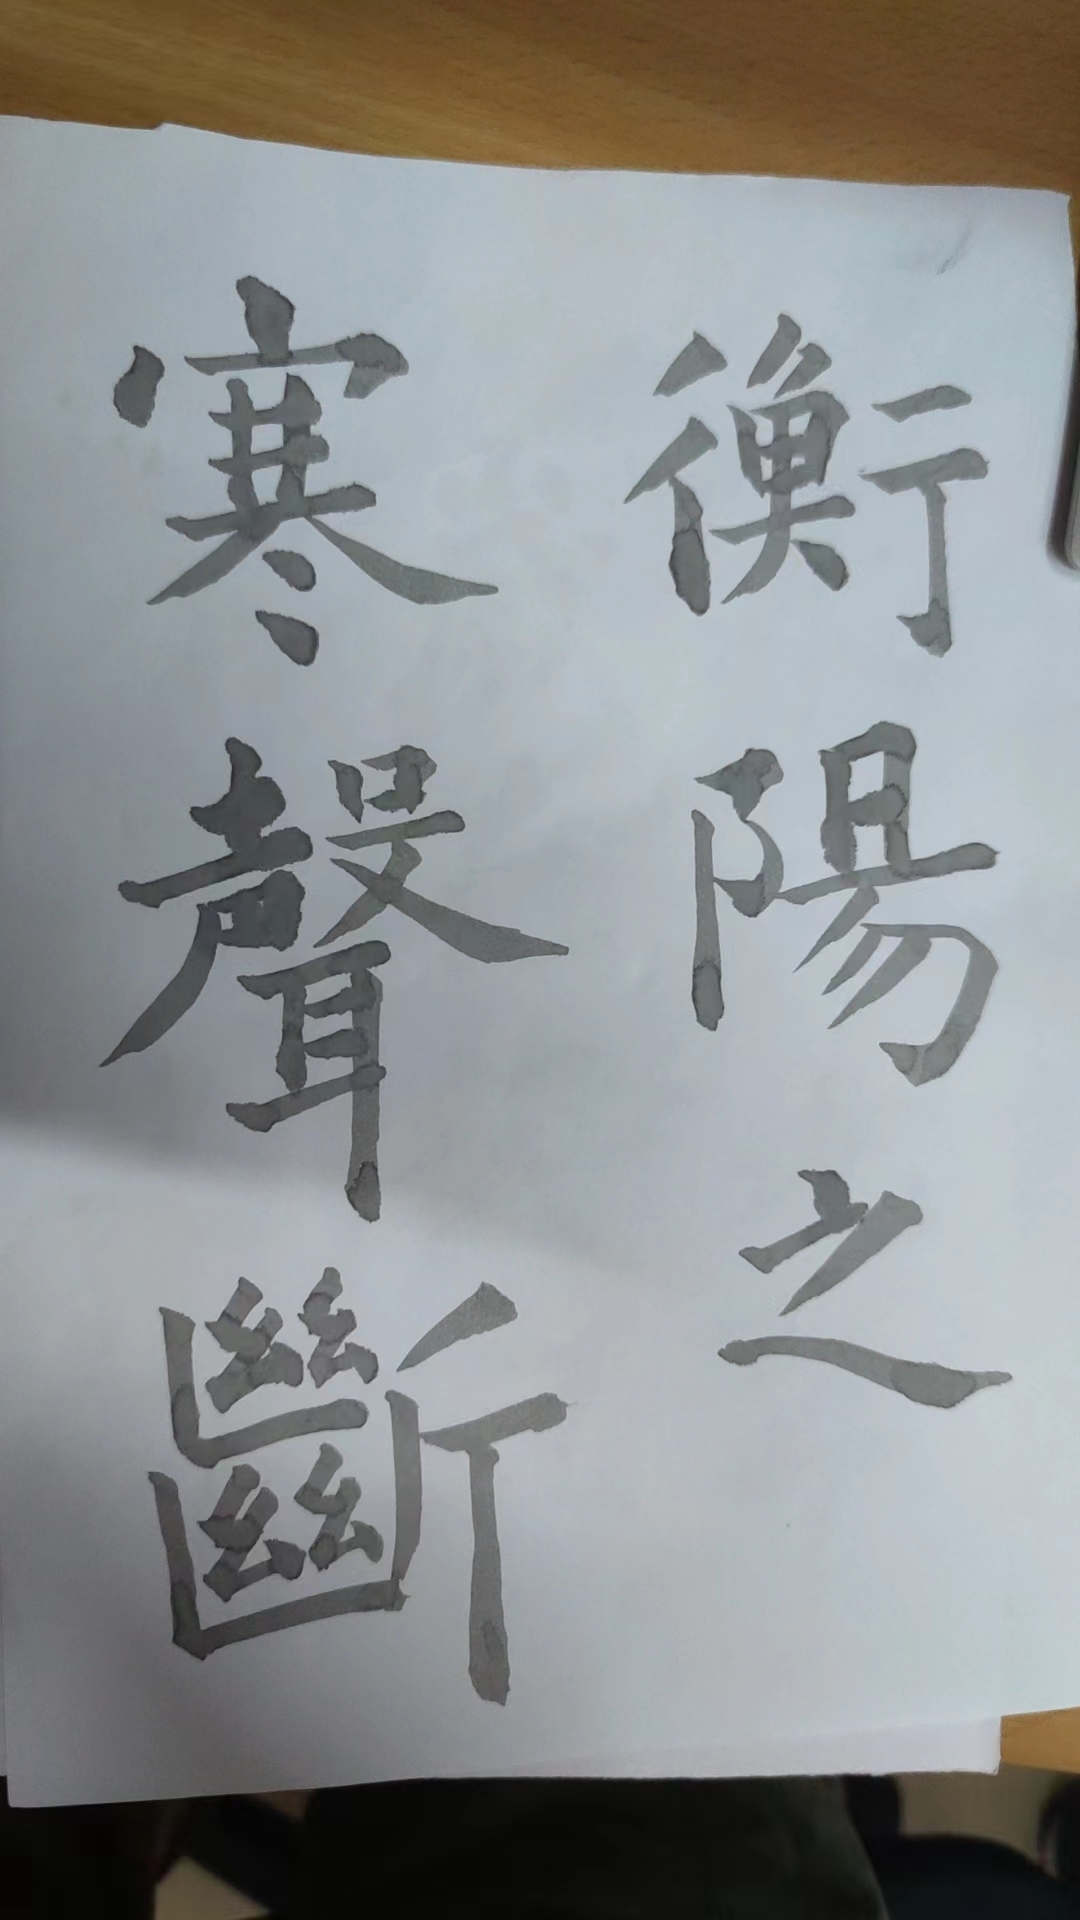 衡陽之
寒聲斷